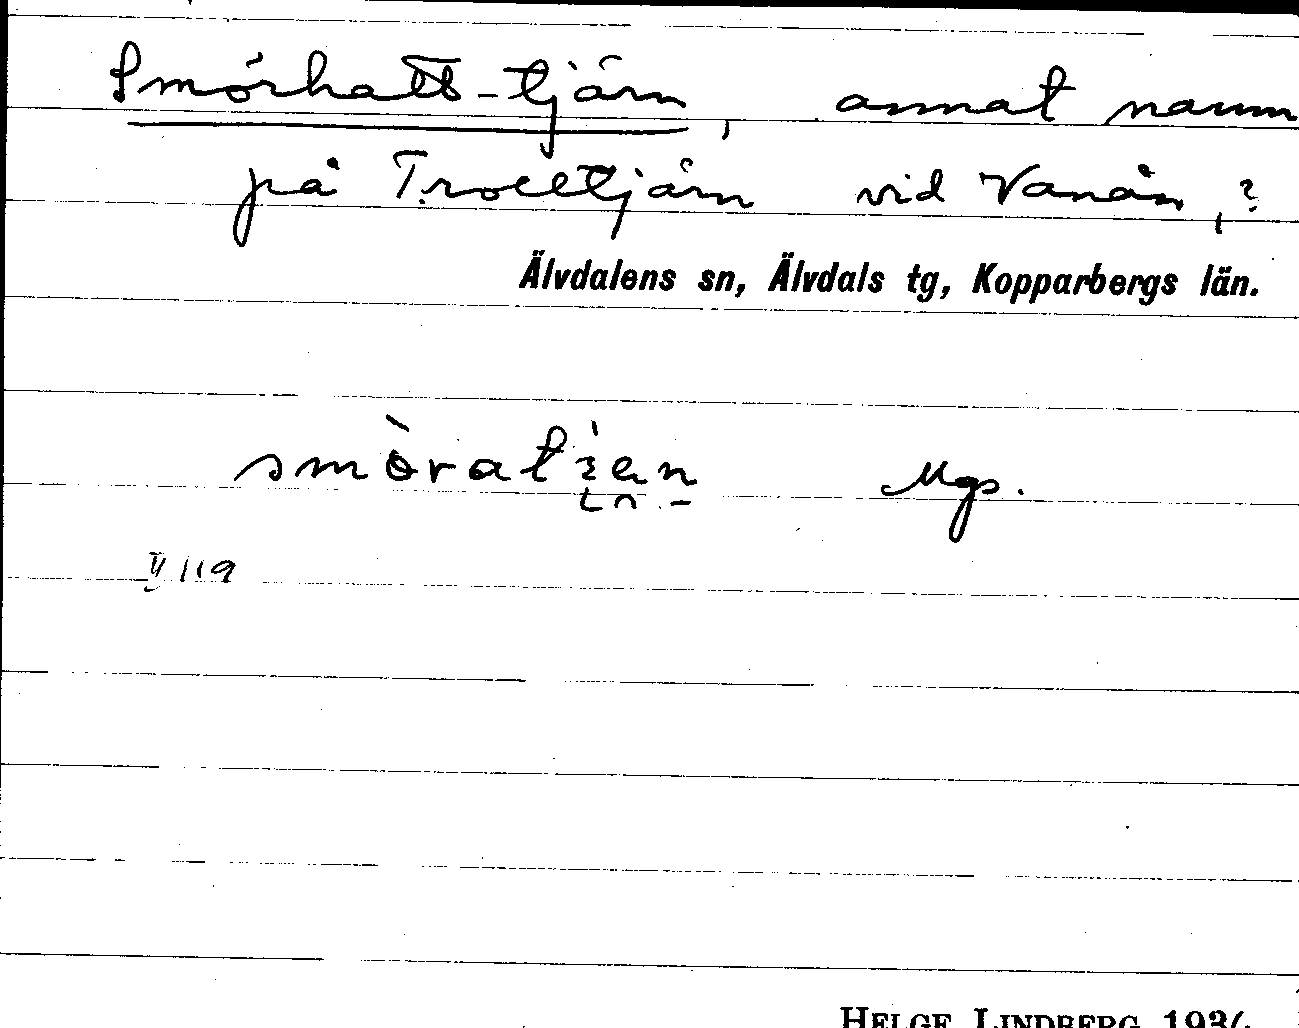 Smörhatt-tjärn, annat namn
på Trolltjärn vid Vanån,?
Älvdalens sn, Älvdals tg, Kopparbergs län.
Mgs.
HELGE LINDBERG 1934